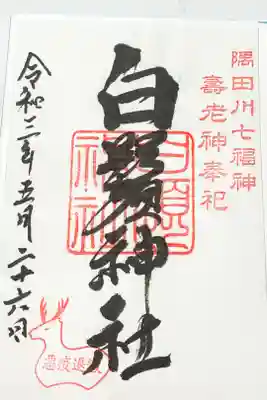 隅田川七福神
壽老神奉祀
白鬚神社
白鬚神社
令和二年五月二十六日
悪疫退散